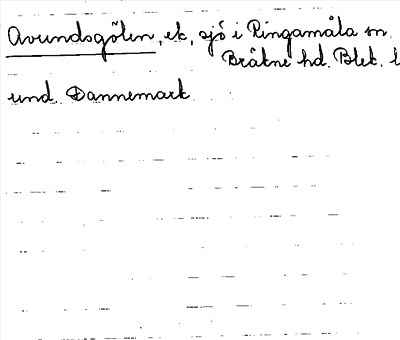 Avundsgölen, ek, sjö i Ringamåla sn.
Bräkne hd. Blek. l
und. Dannemark